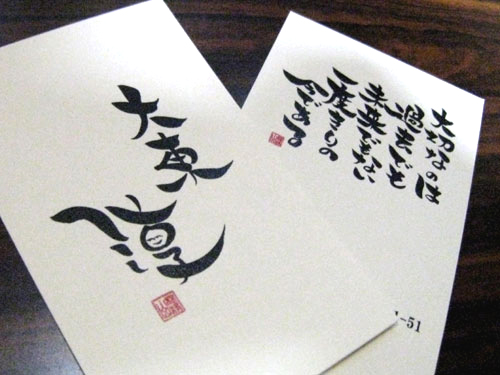 大東
淳
大切なのは
過去でも
未来でもない
一度きりの
今である
-51